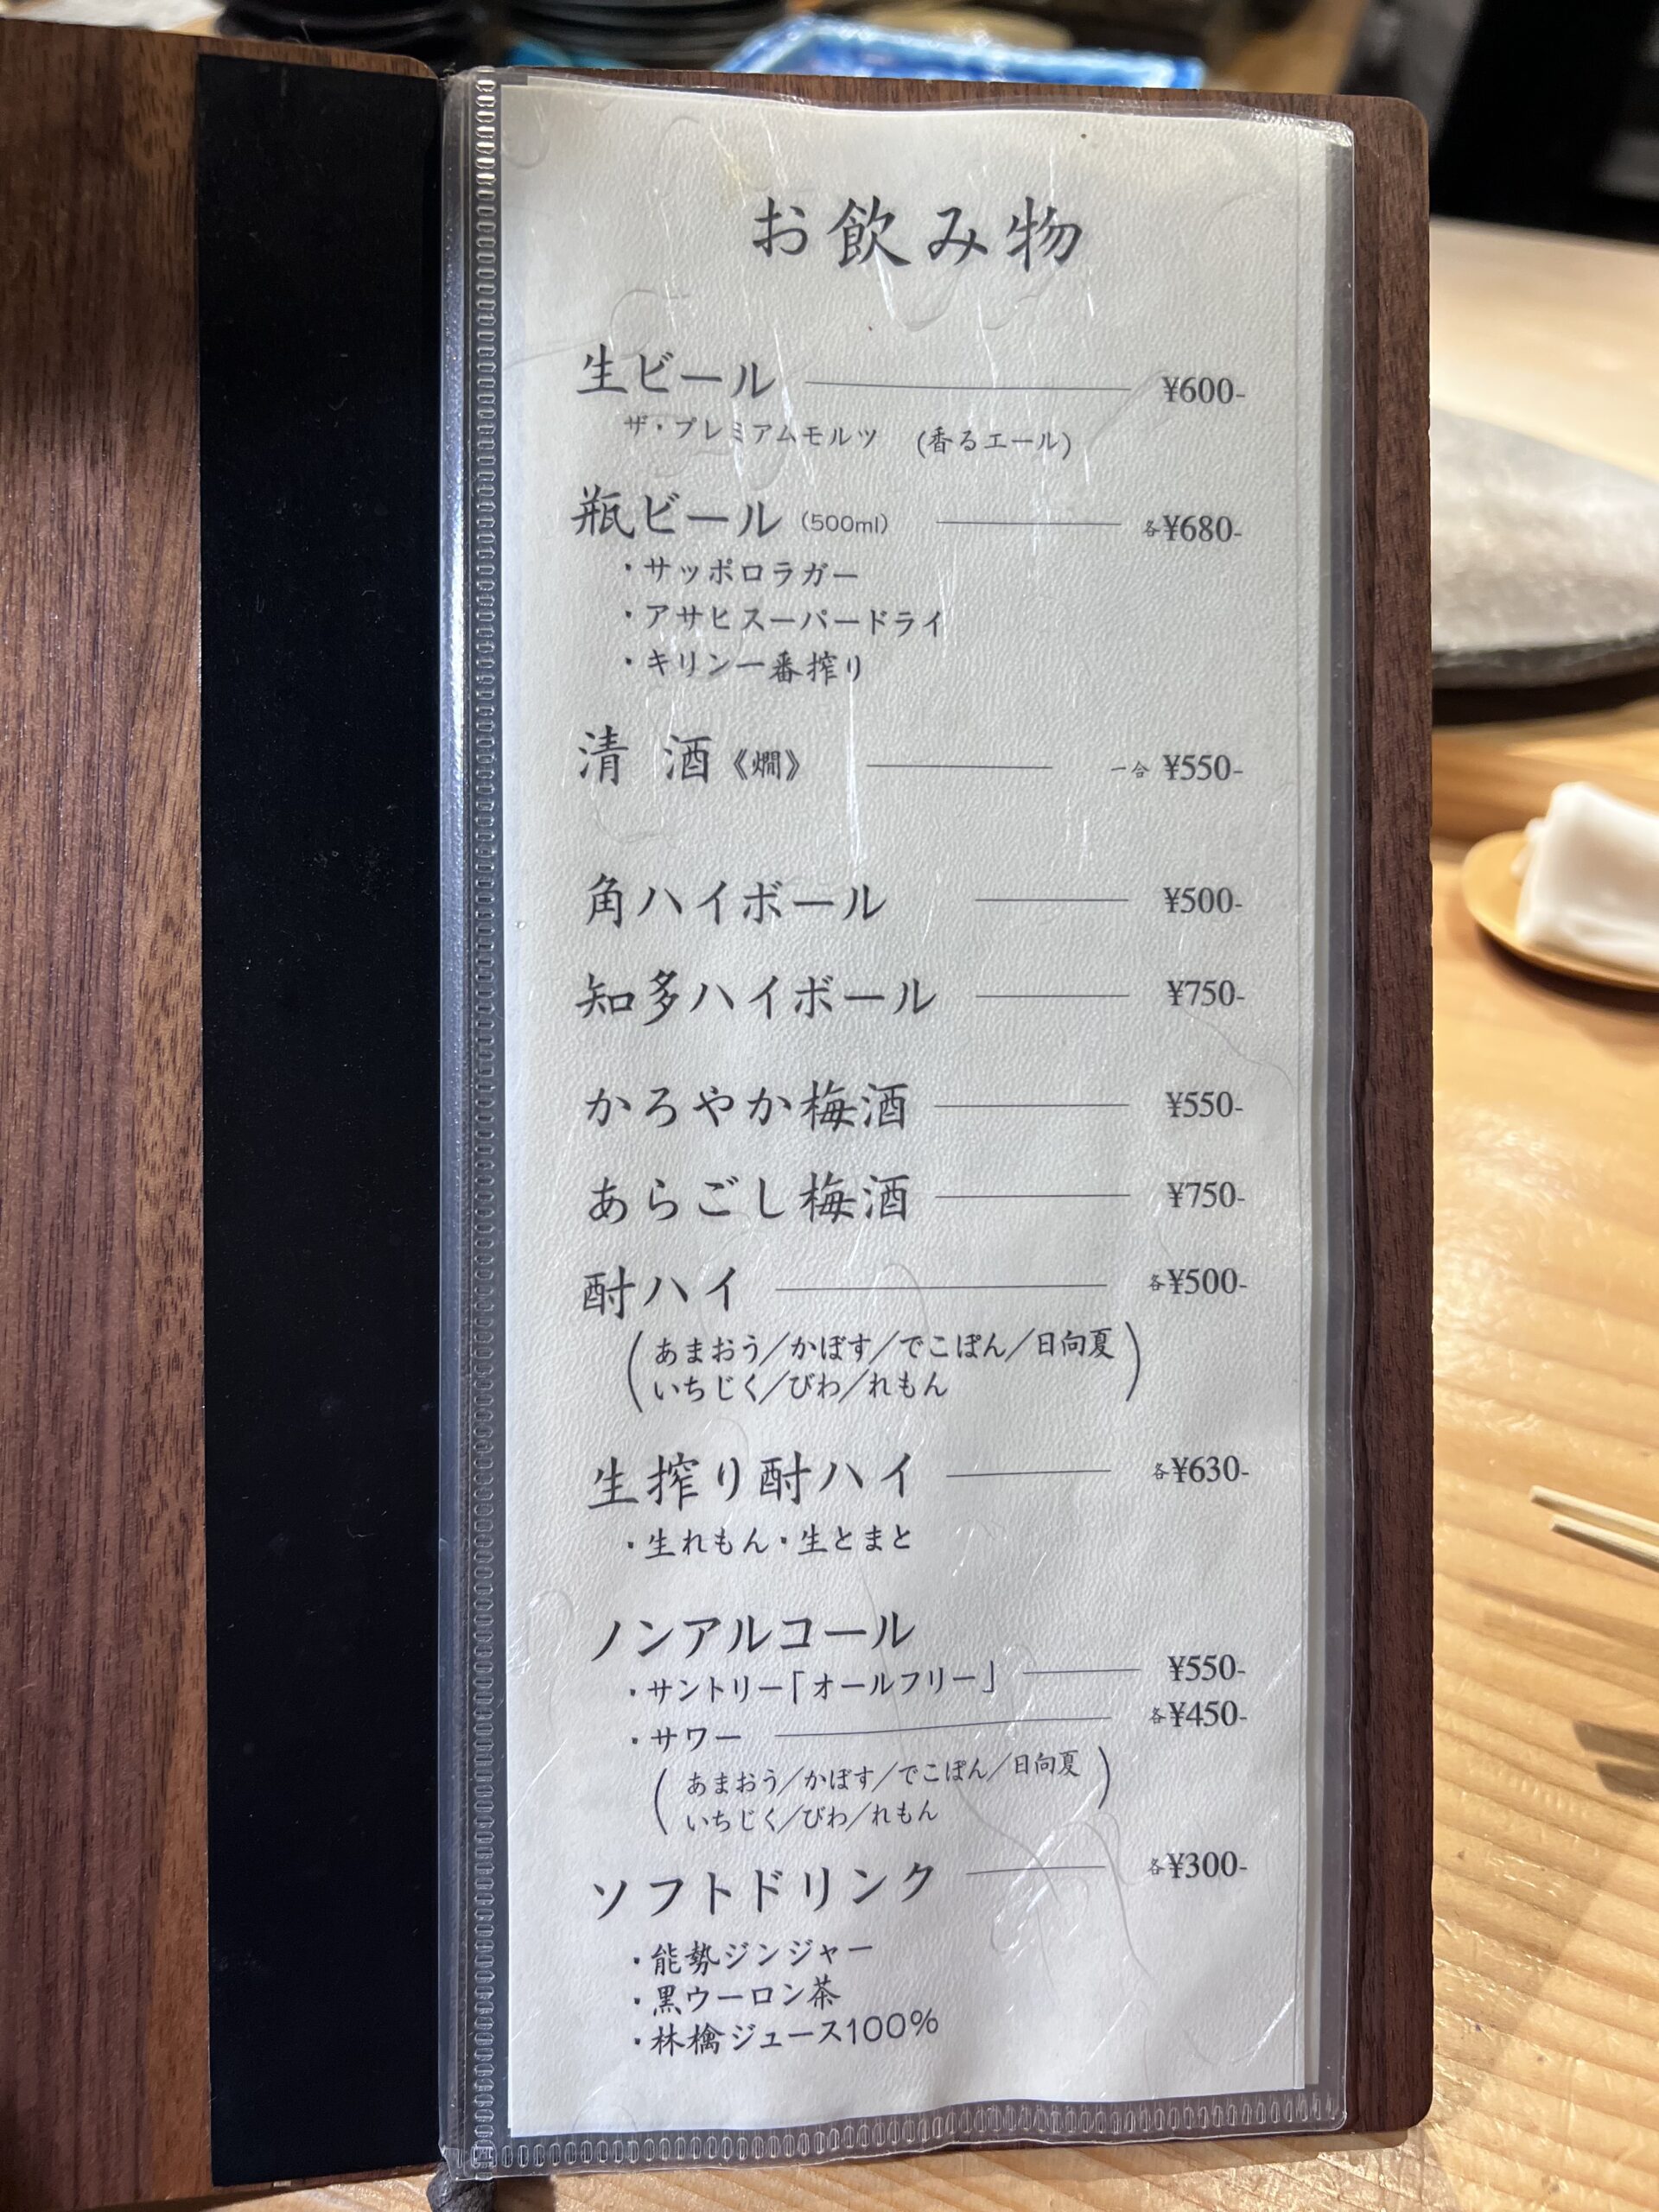 お飲み物
生ビール ¥600-
ザ・プレミアムモルツ (香るエール)
瓶ビール (500ml) 各¥680-
・サッポロラガー
・アサヒスーパードライ
・キリン一番搾り
清 酒《燗》 一合 ¥550-
角ハイボール ¥500-
知多ハイボール ¥750-
かろやか梅酒 ¥550-
あらごし梅酒 ¥750-
酎ハイ 各¥500-
(あまおう/かぼす/でこぽん/日向夏
いちじく/びわ/れもん)
生搾り酎ハイ 各¥630-
・生れもん・生とまと
ノンアルコール
・サントリー「オールフリー」 ¥550-
・サワー 各¥450-
(あまおう/かぼす/でこぽん/日向夏
いちじく/びわ/れもん)
ソフトドリンク 各¥300-
・能勢ジンジャー
・黒ウーロン茶
・林檎ジュース100%